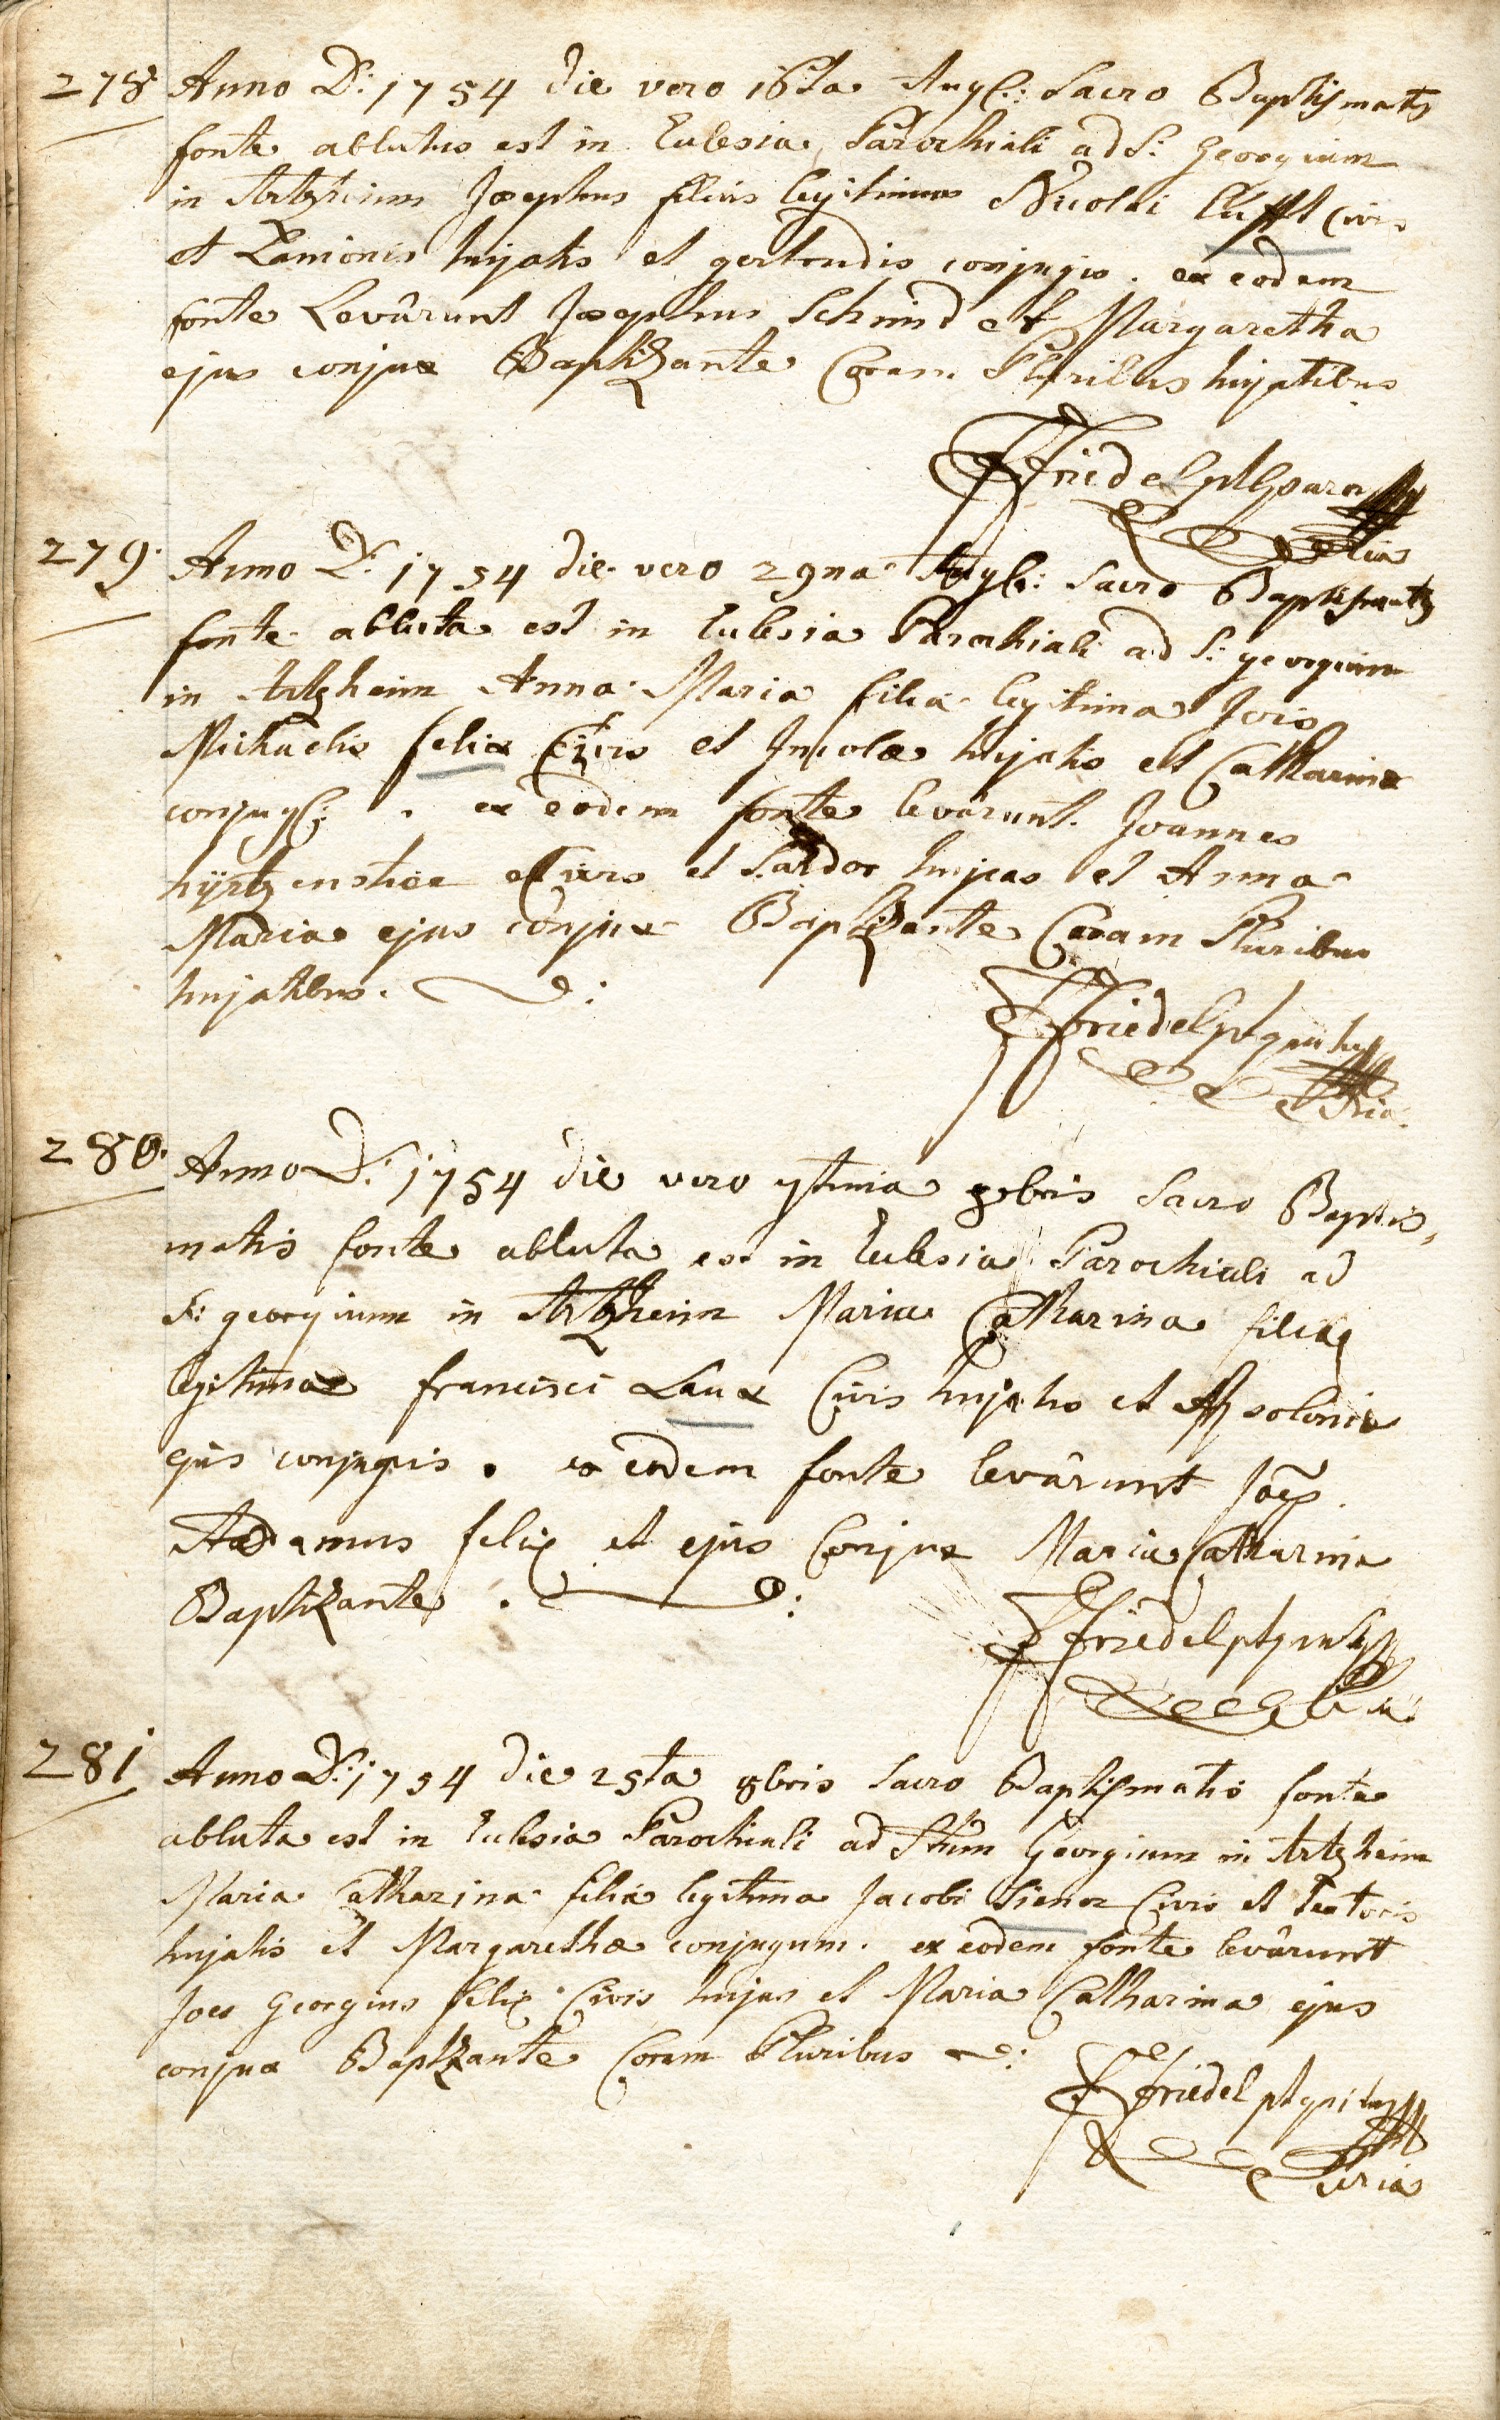 278 Anno D: 1754 die vero 16ta Aug: Sacro Baptismatis
fonte ablutus est in Eclesia Parochiali ad S: Georgium
in Artzheim Josephus filius legitimus Nicolai Lufft Civis
et Lanionis hujatis et gertrudis conjugis. ex eodem
fonte Levârunt Josephus Schmid et Margaretha
ejus conjux Baptizante Coram Pluribus hujatibus
Friedel
279. Anno D: 1754 die vero 29na Aug: Sacro Baptismatis
fonte abluta est in Eclesia Parochiali ad S: georgium
in Artzheim Anna Maria filia legitima Jois
Michaelis felix Civis et Incolæ hujatis et Catharinæ
conjug: . ex eodem fonte levârunt Joannes
Civis et Sardor hujas et Anna
Maria ejus conjux Baptizante Coram Pluribus
hujatibus.
Friedel
280. Anno D: 1754 die vero 7tima 8bris Sacro Baptis,
matis fonte abluta est in Eclesia Parochiali ad
S: georgium in Artzheim Maria Catharina filia
legitima francisci Laux Civis hujatis et Apolonia
ejus conjugis. ex eodem fonte levârunt Joes
Adamus felix et ejus Conjux Maria Catharina
Baptizante .
Friedel
281 Anno D: 1754 die 25ta 8bris Sacro Baptismatis fonte
abluta est in Eclesia Parochiali ad Stum Georgium in Artzheim
Maria Catharina filia legitima Jacobi Siener Civis et textoris
hujatis et Margarethæ conjugum. ex eodem fonte levârunt
Joes Georgius felix Civis hujas et Maria Catharina ejus
conjux Baptizante Coram Pluribus
Friedel